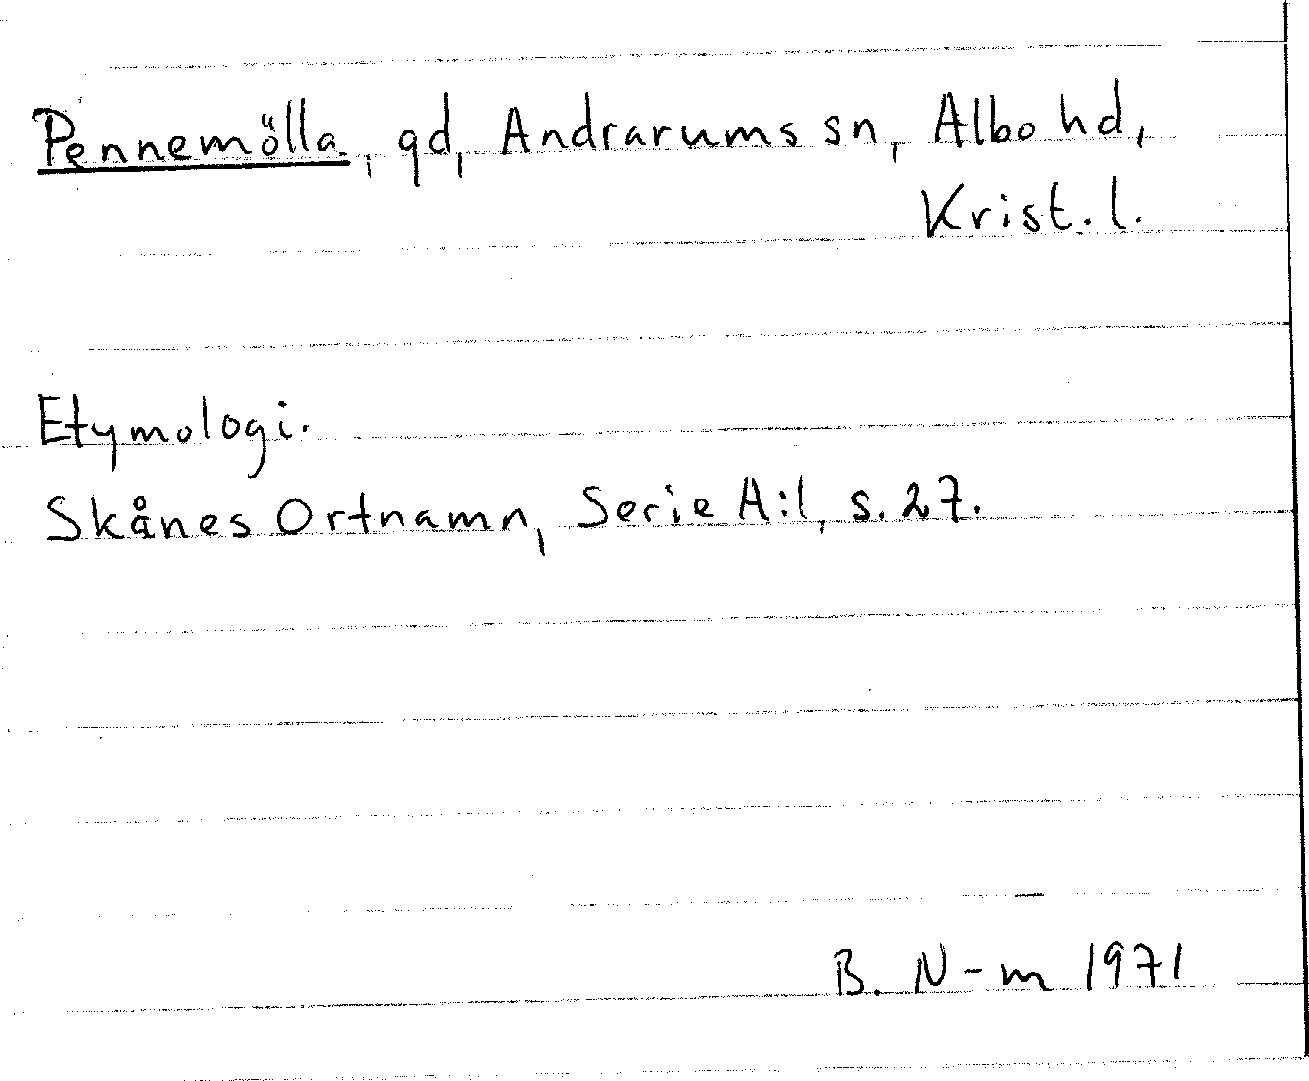 Pennemölla, gd, Andrarums sn, Albo hd,
Krist. l.
Etymologi.
Skånes Ortnamn, Serie A:1, s. 27.
B. N-m 1971